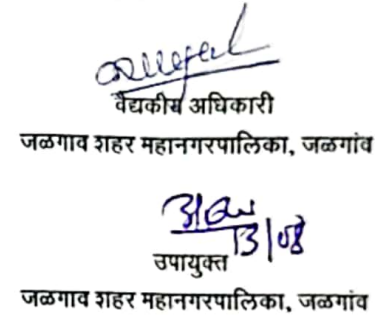 वैद्यकीय अधिकारी
जळगाव शहर महानगरपालिका, जळगांव
13/08
उपायुक्त
जळगाव शहर महानगरपालिका, जळगांव